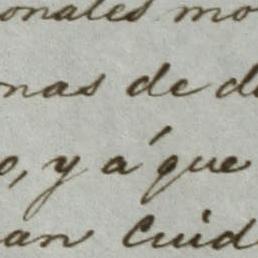 onales mo
nas de d
o, y a' que
an Cuid